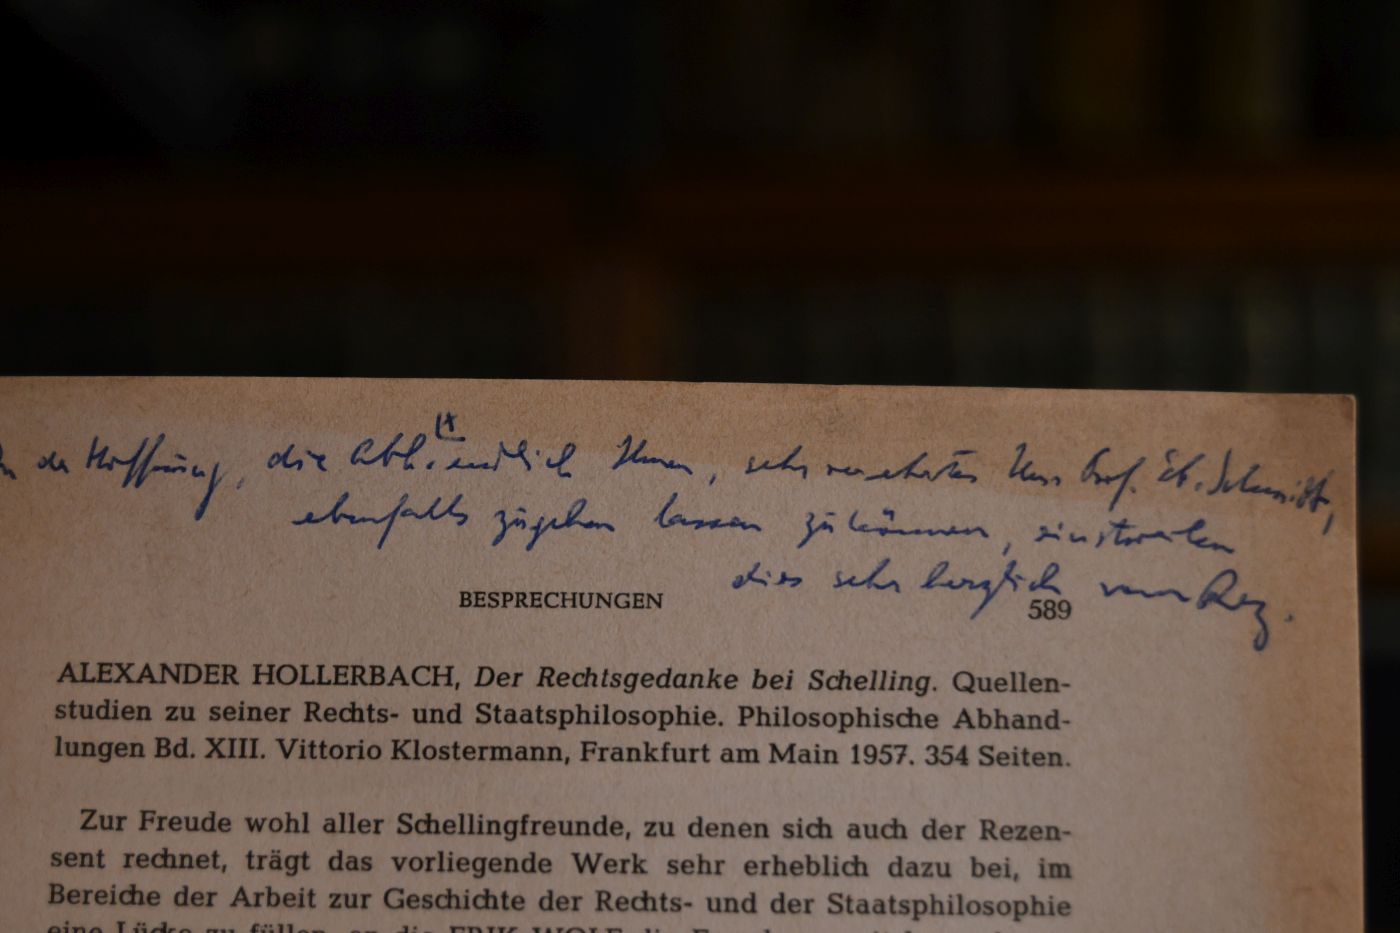 In der Hoffnung, die Abh. endlich Ihnen, sehr verehrter Herr Prof. Eb. Schmidt,
ebenfalls zugehen lassen zu können, einstweilen
dies sehr herzlich vom Rez.
BESPRECHUNGEN 589
ALEXANDER HOLLERBACH, Der Rechtsgedanke bei Schelling. Quellen-
studien zu seiner Rechts- und Staatsphilosophie. Philosophische Abhand-
lungen Bd. XIII. Vittorio Klostermann, Frankfurt am Main 1957. 354 Seiten.
Zur Freude wohl aller Schellingfreunde, zu denen sich auch der Rezen-
sent rechnet, trägt das vorliegende Werk sehr erheblich dazu bei, im
Bereiche der Arbeit zur Geschichte der Rechts- und der Staatsphilosophie
eine Lücke zu füllen, an die ERIK WOLF die